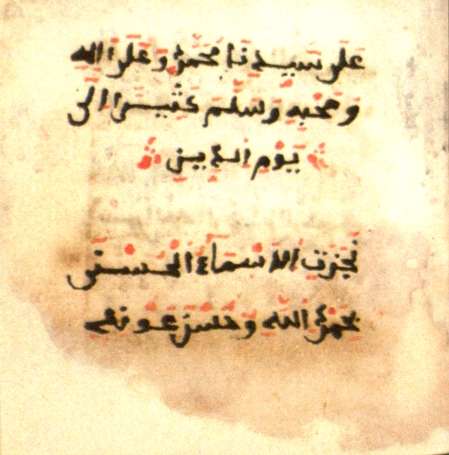 على سيدنا محمد وعلى اله
وصحبه وسلم كثيرا الى
يوم الدين
نجزت الاسماء الحسنى
بحمد الله وحسن عونه